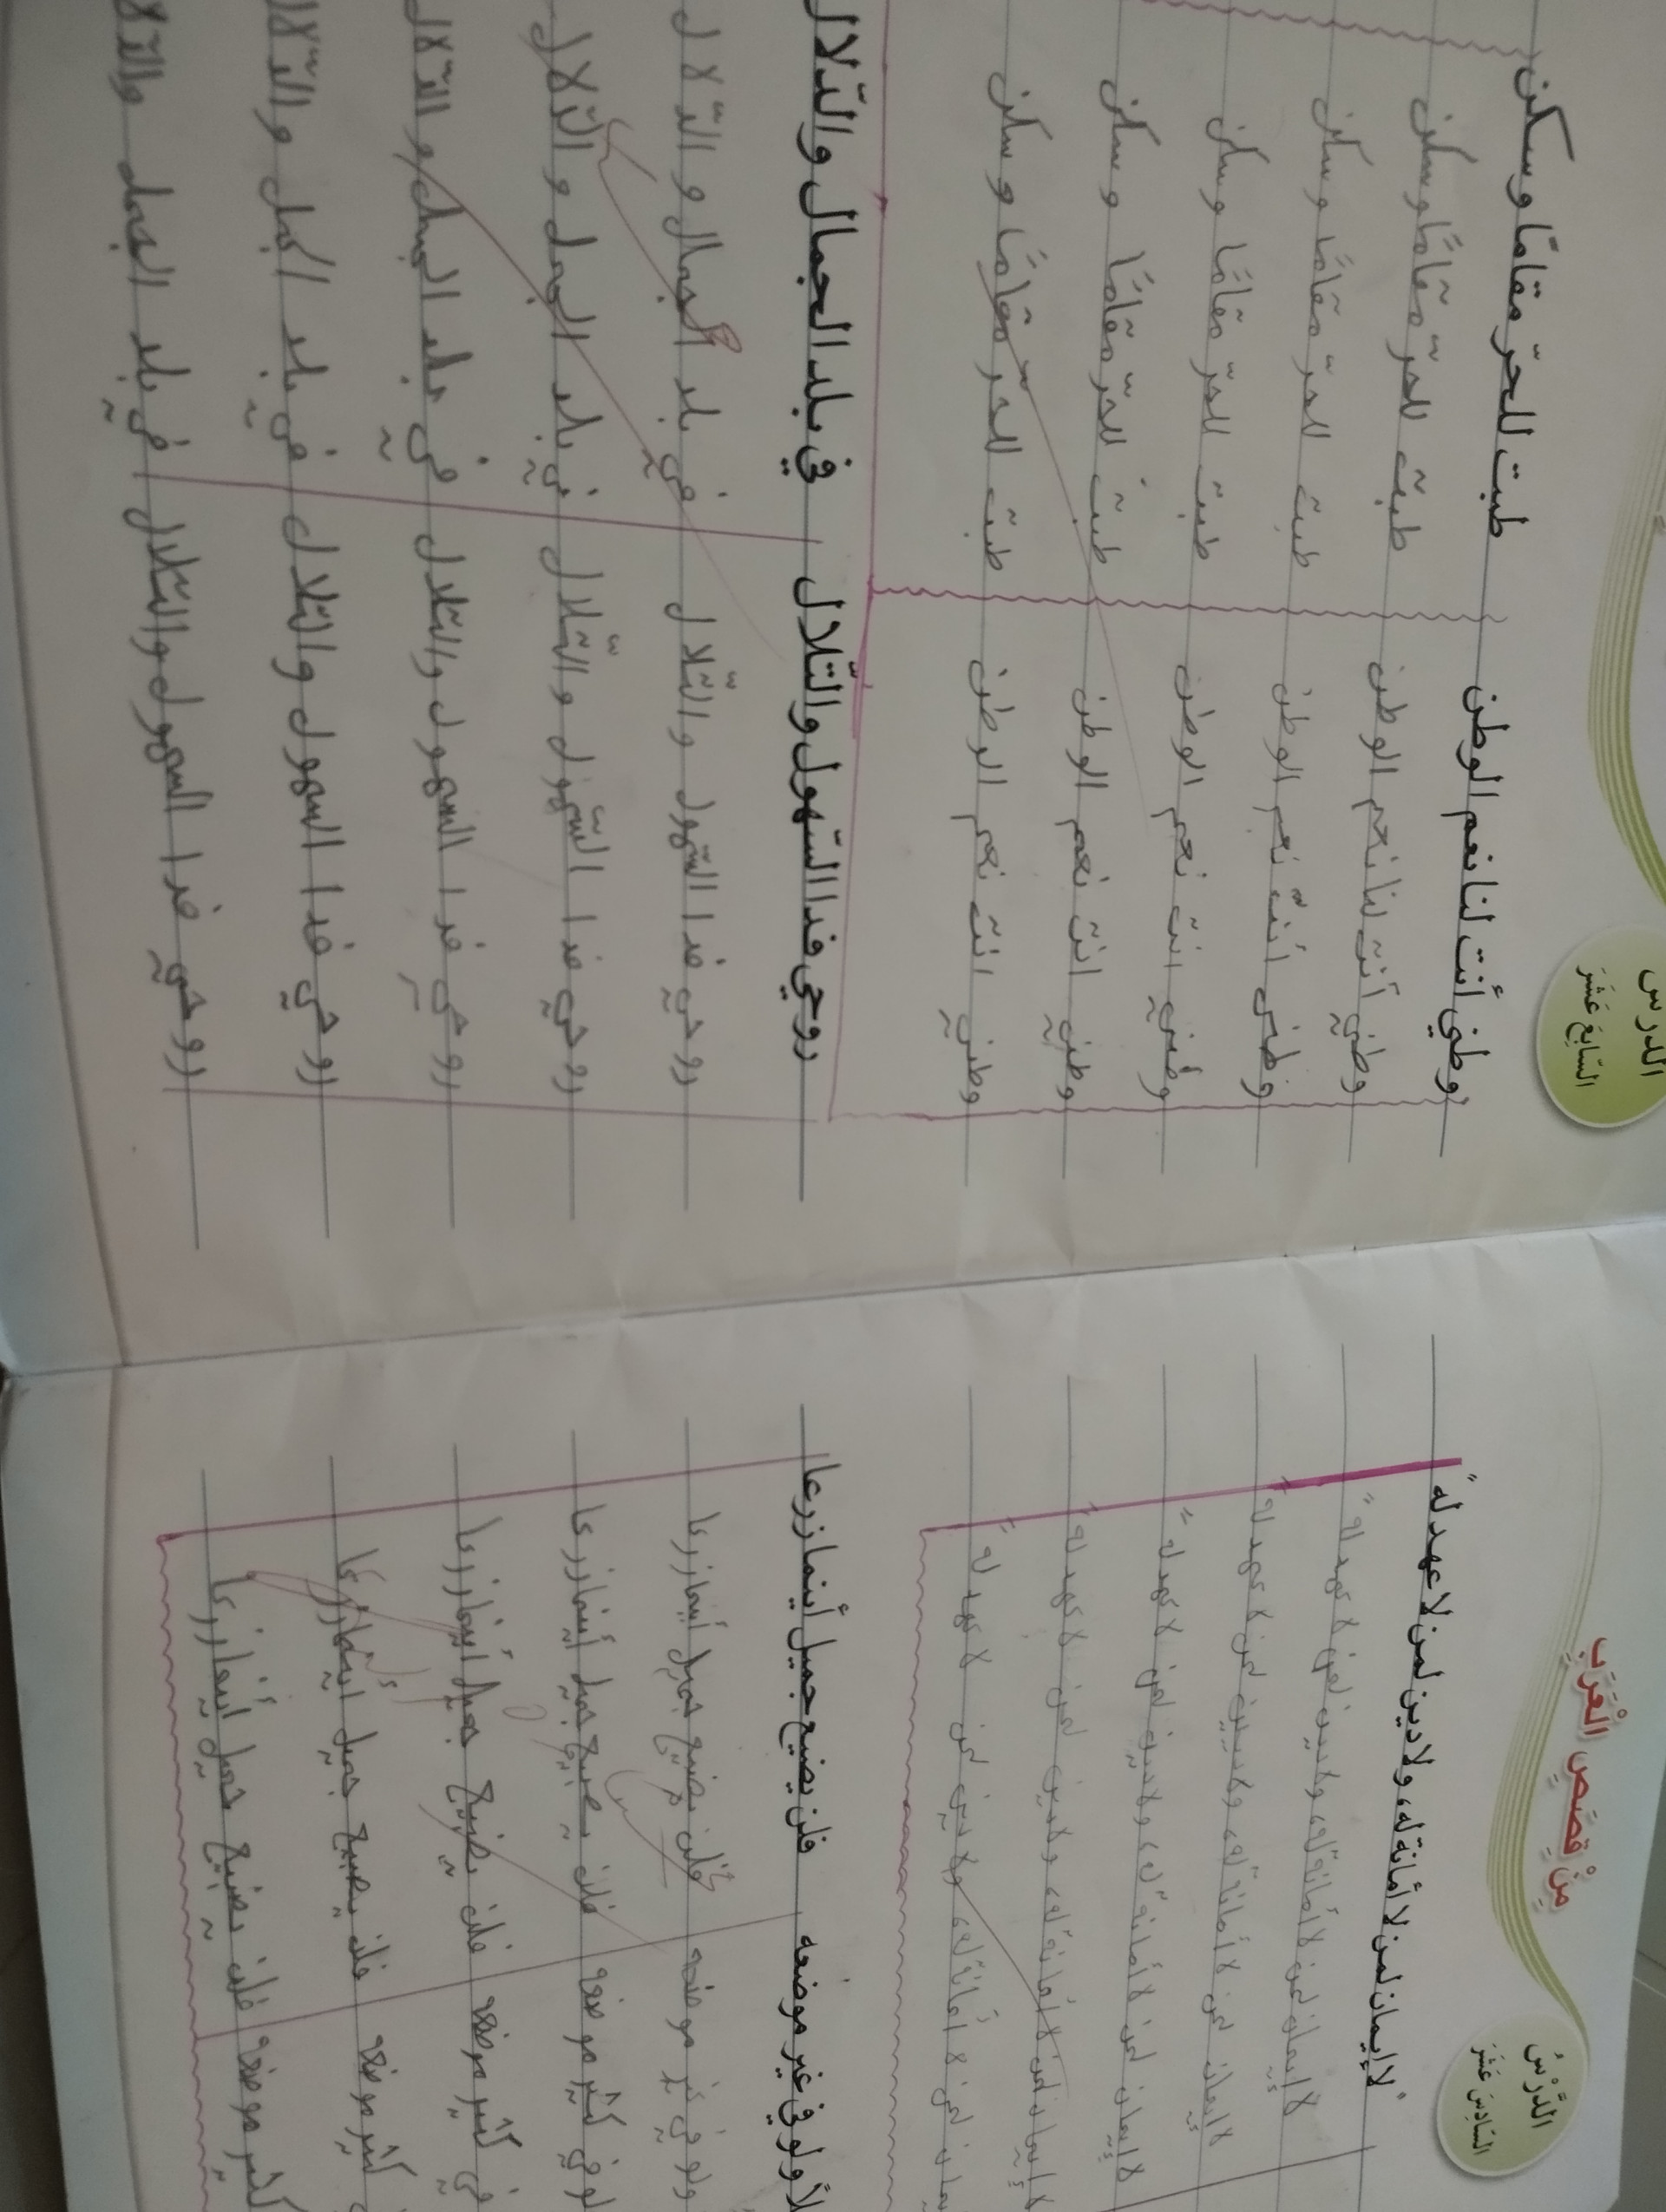 الدرس
السّابعَ عَشَرَ
وطني أنت لنا نعم الوطن طبت للحرّ مقامًا وسكن
وطني أنت لنا نعم الوطن طبت للحرّ مقامًا وسكن
وطني أنت نعم الوطن طبت للحرّ مقامًا وسكن
وطني انت نعم الوطن طبت للحرّ مقامًا وسكن
وطني انت نعم الوطن طبت للحرّ مقامًا وسكن
وطني انت نعم الوطن طبت للحرّ مقامًا وسكن
روحي فدا السّهول والتّلال في بلد الجمال والدّلال
روحي فدا السّهول والتّلال في بلد الجمال و الدّلال
روحي فدا السّهول والتّلال في بلد و الدّلال
روحي فدا السهول والتّلال في بلد و الدّلال
روحي فدا السهول والتّلال في بلد والدّلا
روحي فدا السهول والتّلال في بلد والدّلا
الدَّرْسُ
السَّادِسَ عَشَرَ
مِنْ قَصَصِ الْعَرَبِ
"لا إيمان لمن لا أمانة له، ولا دين لمن لا عهد له"
لا إيمان لمن لا أمانة له، ولا دين لمن لا عهد له"
لا إيمان لمن لا أمانة له، ولا دين لمن لا عهد له"
لا إيمان لمن لا أمانة له، ولا دين لمن لا عهد له"
لا إيمان لمن لا أمانة له، ولا دين لمن لا عهد له"
لمن لا أمانة له، ولا دين لمن لا عهد له"
ولو في غير موضعه فلن يضيع جميل أينما زرعا
ولو في غير موضعه فلن يضيع جميل أينما زرعا
في غير موضعه فلن يضيع جميل أينما زرعا
في موضعه فلن يضيع جميل أينما زرعا
موضعه فلن يضيع جميل أينما زرعا
موضعه فلن يضيع جميل أينما زرعا